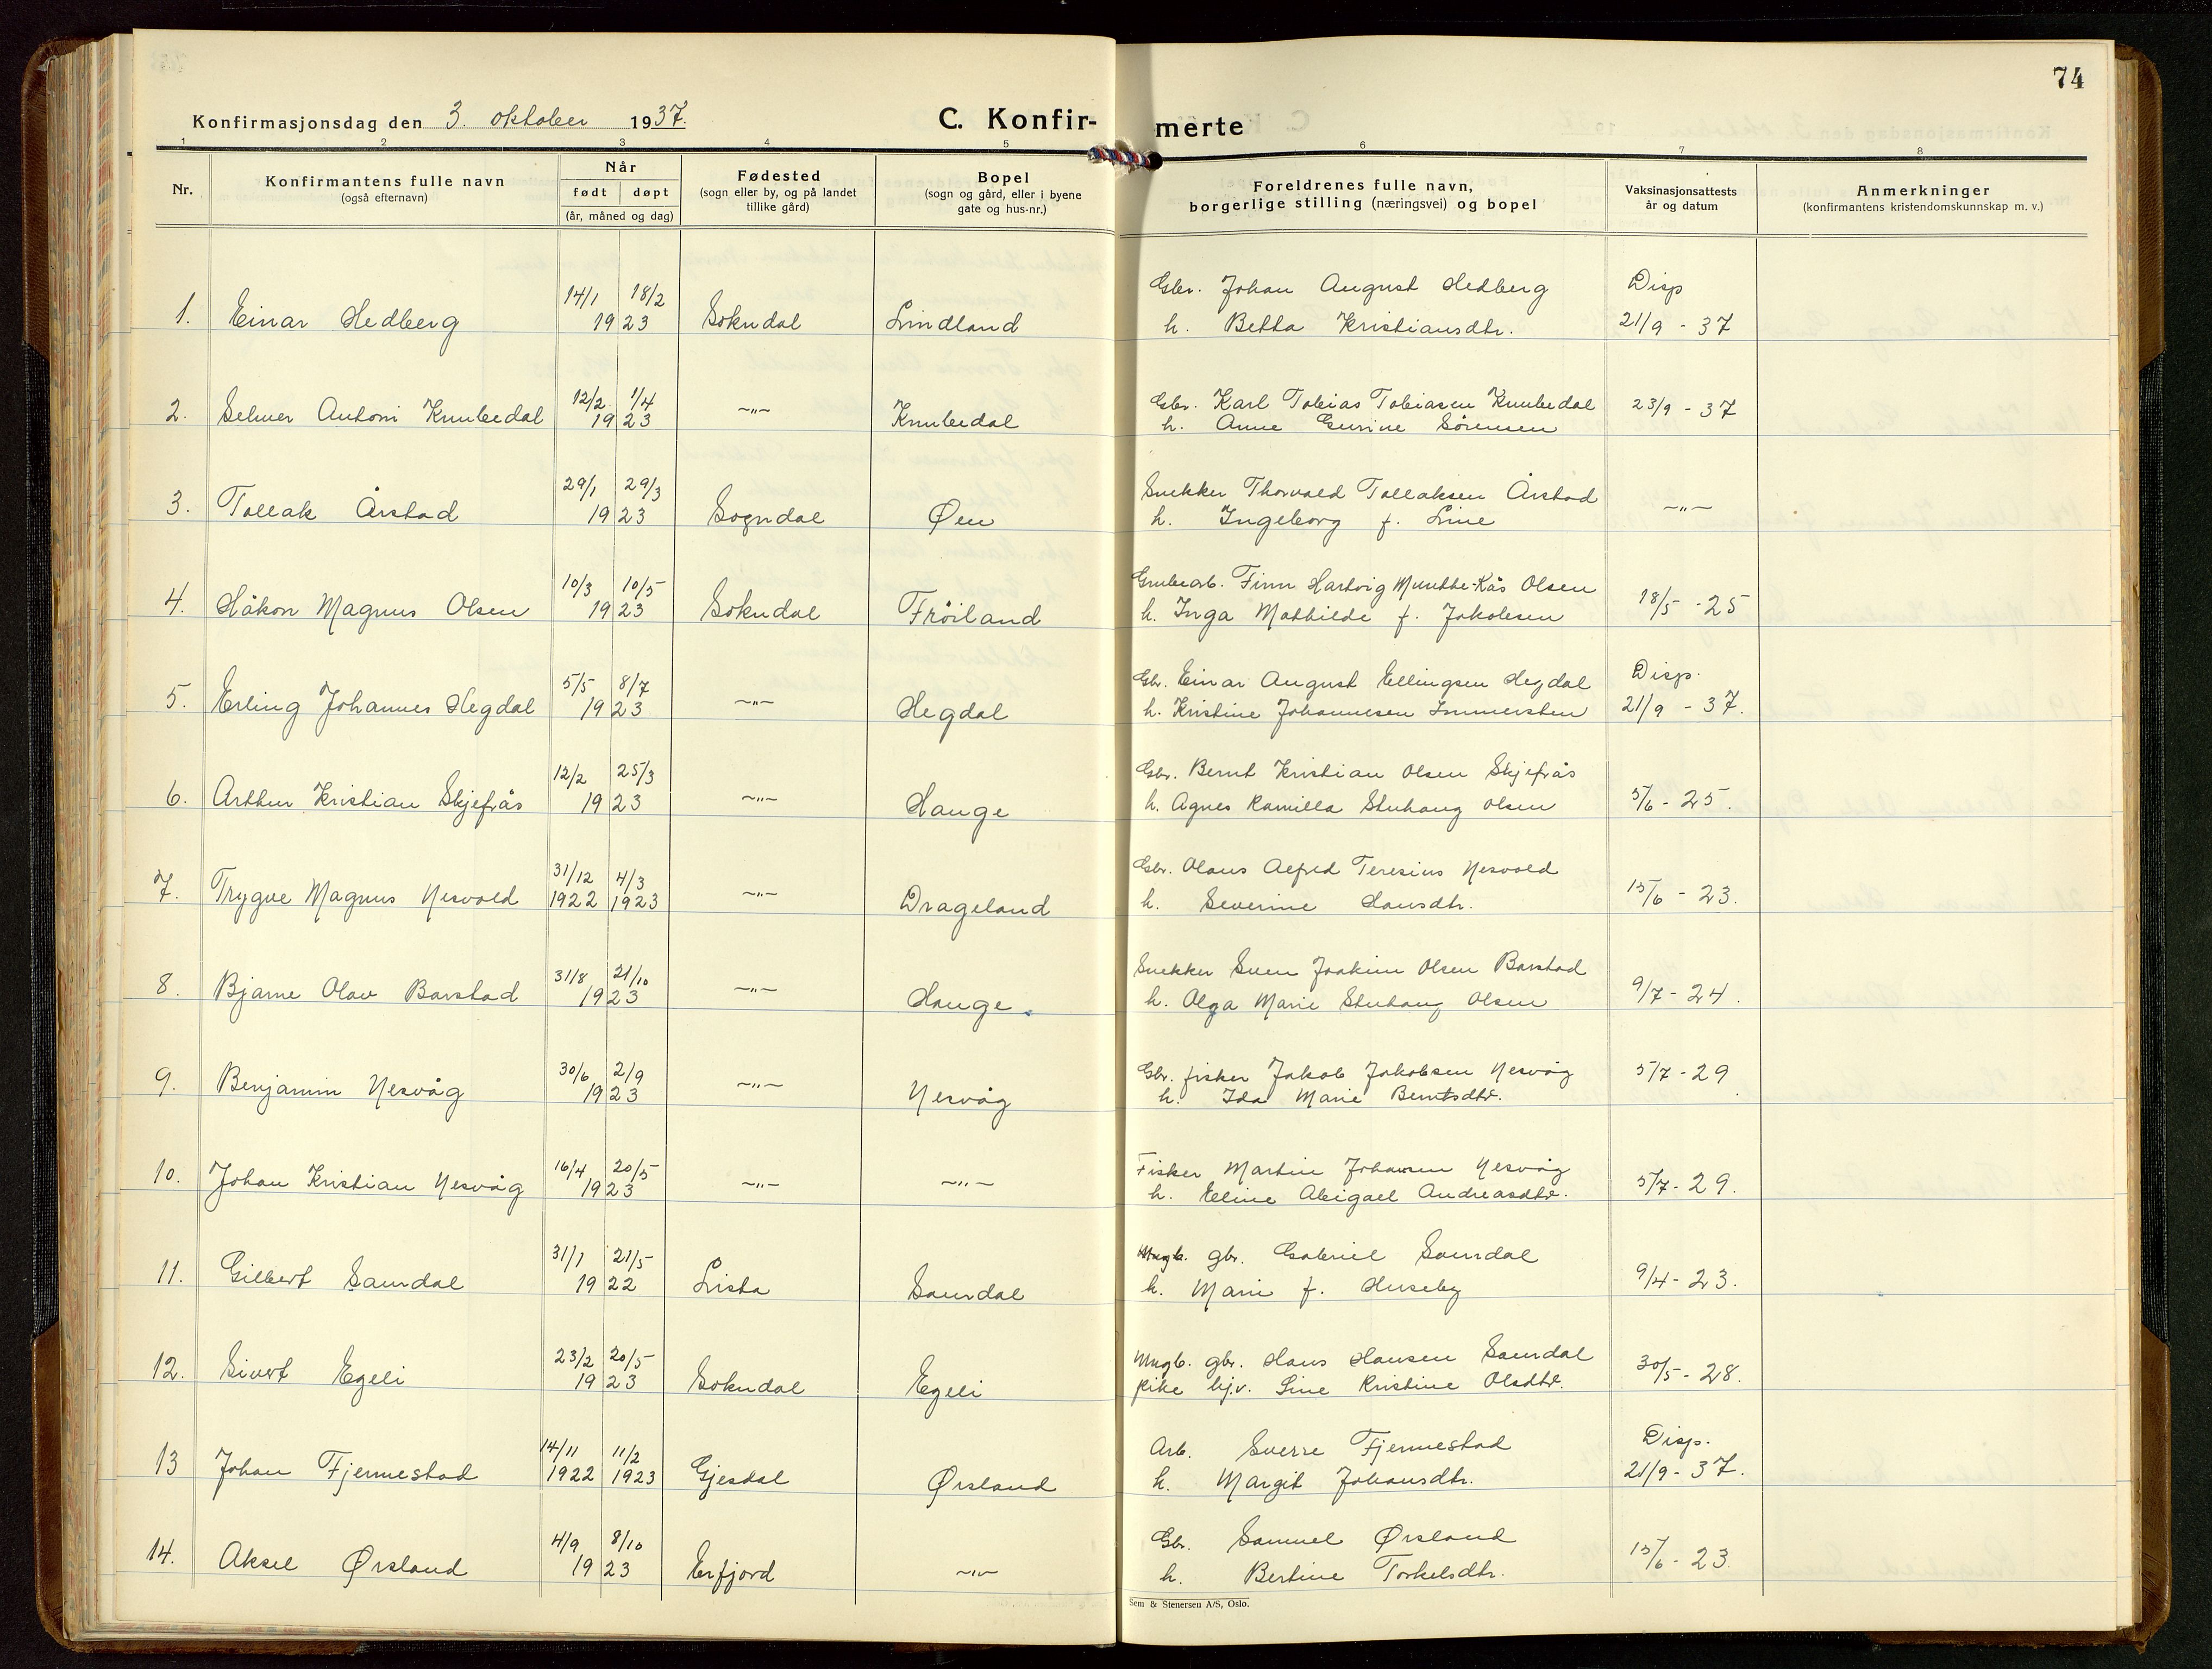 74
Konfirmasjonsdag den 3. oktober 1937.
C. Konfir-
merte
1 2 3 4 5 6 7 8
Nr.
Konfirmantens fulle navn
(også efternavn)
Når
født døpt
(år, måned og dag)
Fødested
(sogn eller by, og på landet
tillike gård)
Bopel
(sogn og gård, eller i byene
gate og hus-nr.)
Foreldrenes fulle navn,
borgerlige stilling (næringsvei) og bopel
Vaksinasjonsattests
år og datum
Anmerkninger
(konfirmantens kristendomskunnskap m. v.)
14/1 18/2 Gbr. Johan August Hedberg Disp
1. Einar Hedberg 1923 Sokndal Lindland h. Betta Kristiansdtr. 21/9 - 37
12/2 1/4 Gbr. Karl Tobias Tobiasen Knubedal 23/9 - 37
2. Selmer Antoni Knubedal 1923 -"- Knubedal h. Anne Gurine Sørensen
29/1 29/3 Snekker Thorvald Tollaksen Årstad
3. Tollak Årstad 1923 Sogndal Øen h. Ingeborg f. Line -"-
10/3 10/5 Grubearb. Finn Hartvig Munthe-Kås Olsen
4. Håkon Magnus Olsen 1923 Sokndal Frøiland h. Inga Mathilde f. Jakobsen 18/5 - 25
5/5 8/7 Gbr. Einar August Ellingsen Hegdal Disp.
5. Erling Johannes Hegdal 1923 -"- Hegdal h. Kristine Johannesen Immersten 21/9 - 37.
12/2 25/3 Gbr. Bernt Kristian Olsen Skjefrås
6. Arthur Kristian Skjefrås 1923 -"- Hauge h. Agnes Kamilla Stuhaug Olsen 5/6 - 25.
31/12 4/3 Gbr. Olaus Alfred Teresius Nesvold
7. Trygve Magnus Nesvold 1922 1923 -"- Drageland h. Severine Hansdtr. 15/6 - 23.
31/8 21/10 Snekker Sven Joakim Olsen Barstad
8. Bjarne Olav Barstad 1923 -"- Hauge. h. Olga Marie Stuhaug Olsen 9/7 - 24.
30/6 2/9 Gbr. fisker Jakob Jakobsen Nesvåg 5/7 - 29
9. Benjamin Nesvåg 1923 -"- Nesvåg h. Ida Marie Berntsdtr.
16/4 20/5 Fisker Martin Johansen Nesvåg
10. Johan Kristian Nesvåg 1923 -"- -"- h. Eline Abigael Andreasdtr. 5/7 - 29.
31/1 21/5 Ungk. gbr. Gabriel Saurdal
11. Gilbert Saurdal 1922 Lista Saurdal h. Marie f. Huseby 9/4 - 23.
23/2 20/5 Ungk. gbr. Hans Hansen Saurdal 30/5 - 28.
12. Sivert Egeli 1923 Sokndal Egeli pike hjv. Sine Kristine Olsdtr.
14/11 11/2 Arb. Sverre Fjermestad Disp.
13 Johan Fjermestad 1922 1923 Gjesdal Ørsland h. Margit Johansdtr. 21/9 - 37.
4/9 8/10 Gbr. Samuel Ørsland
14. Aksel Ørsland 1923 Erfjord -"- h. Bertine Torkelsdtr. 15/6 - 23.
Sem & Stenersen A/S, Oslo.